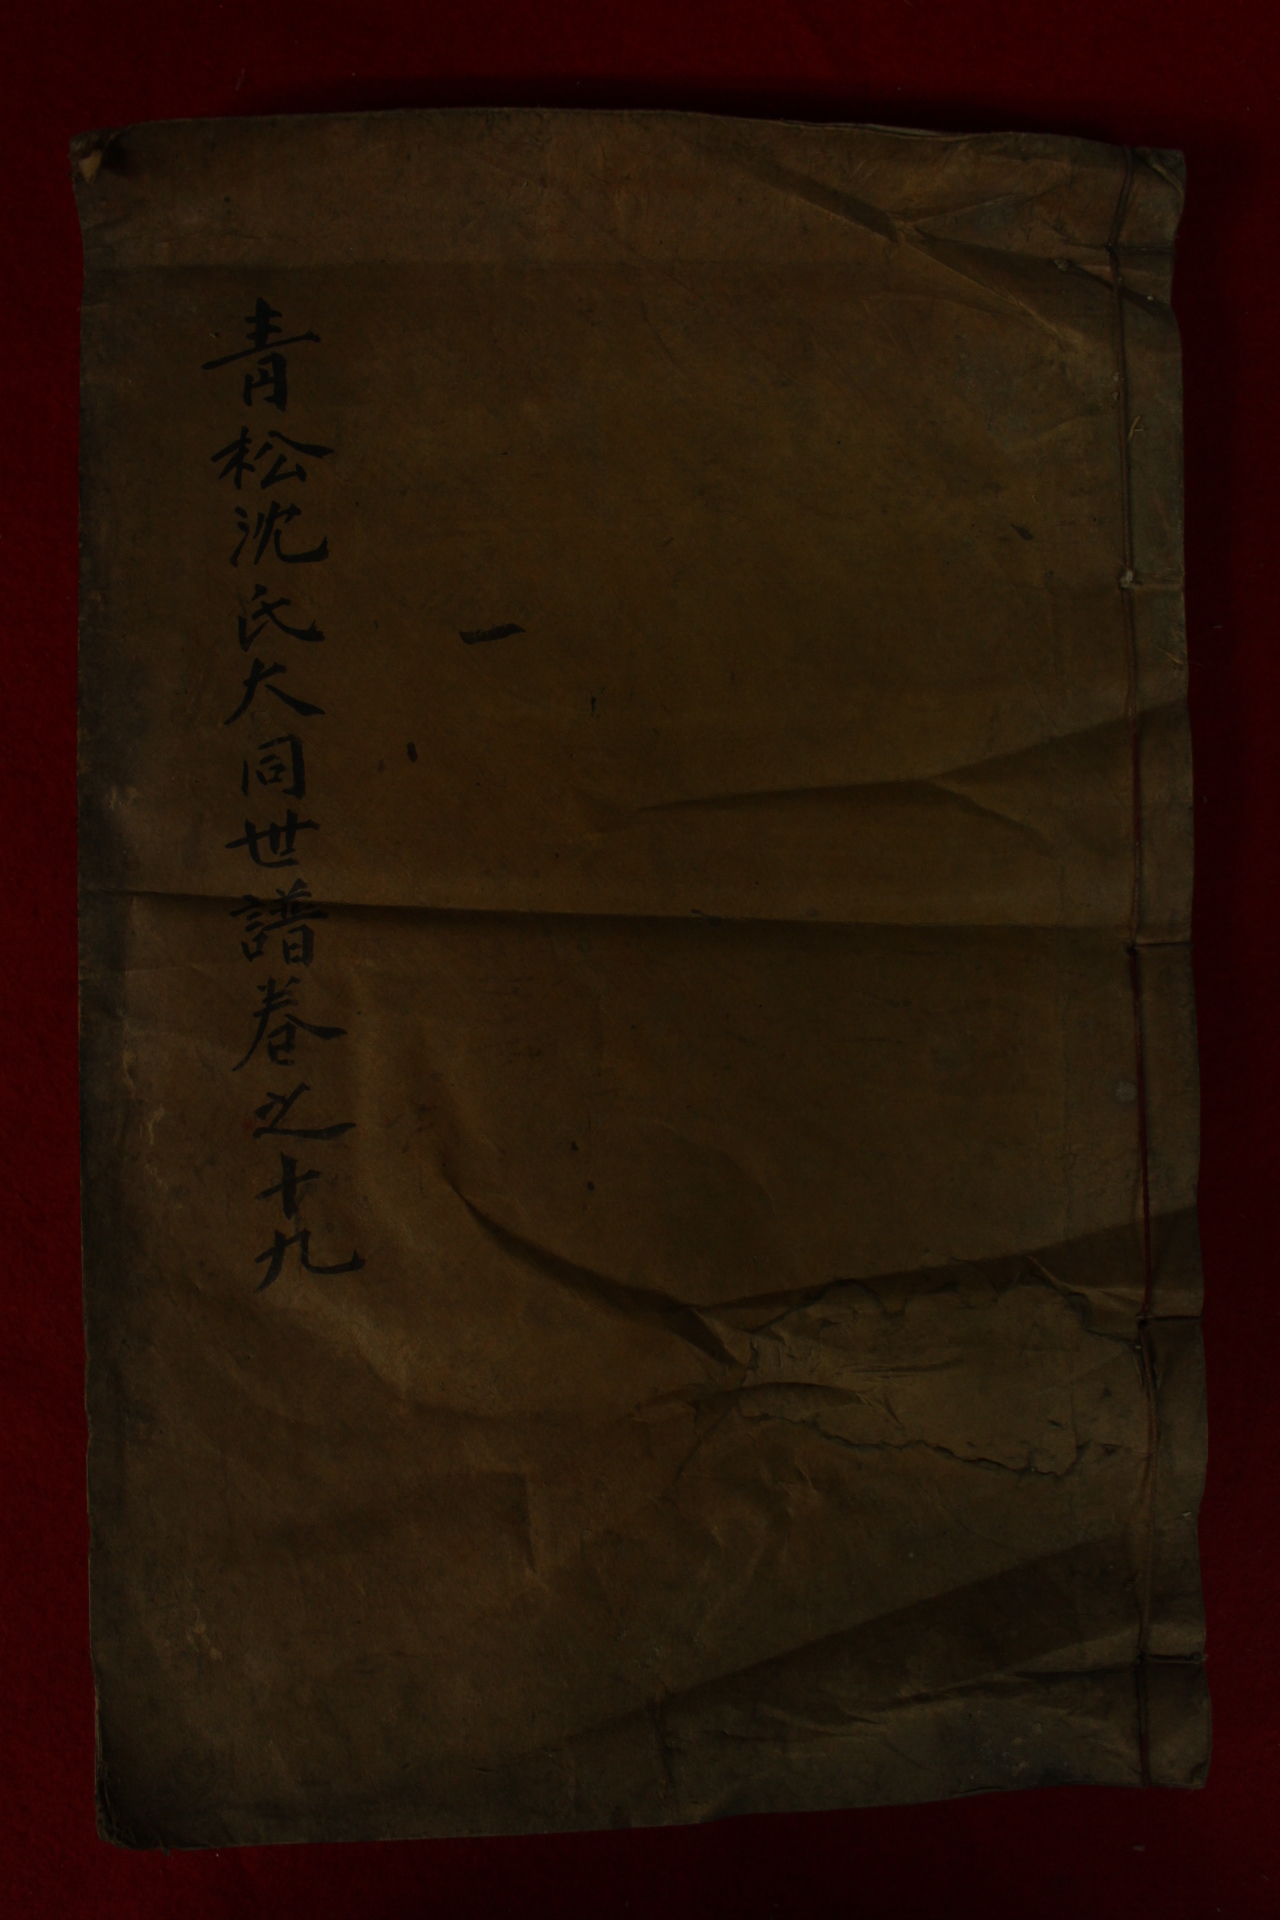 青松沈氏大同世譜卷之十九